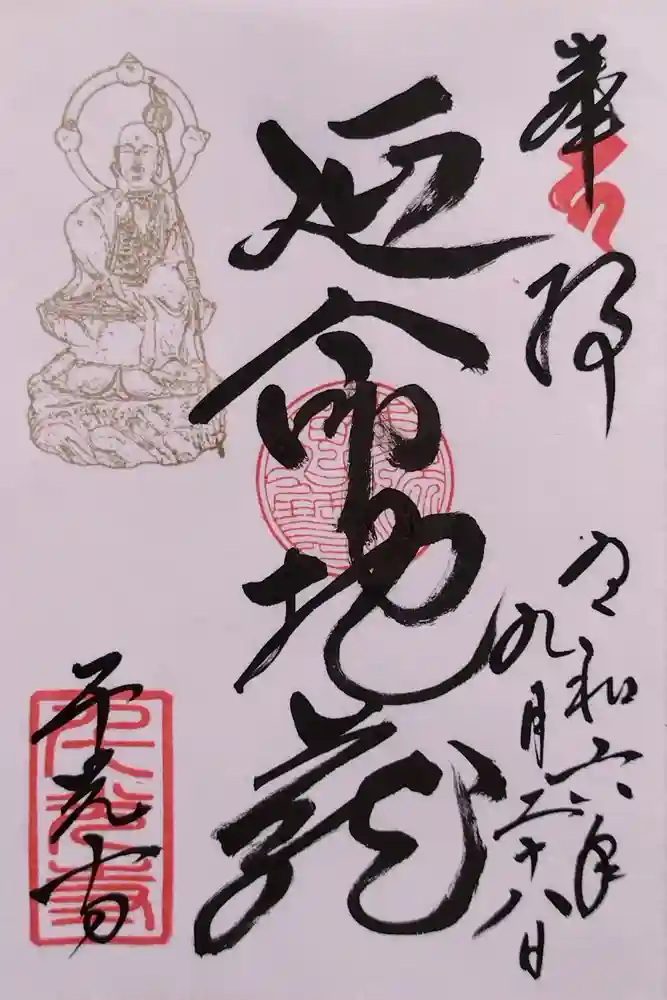 奉拝
令和六年
九月二十八日
延命地蔵